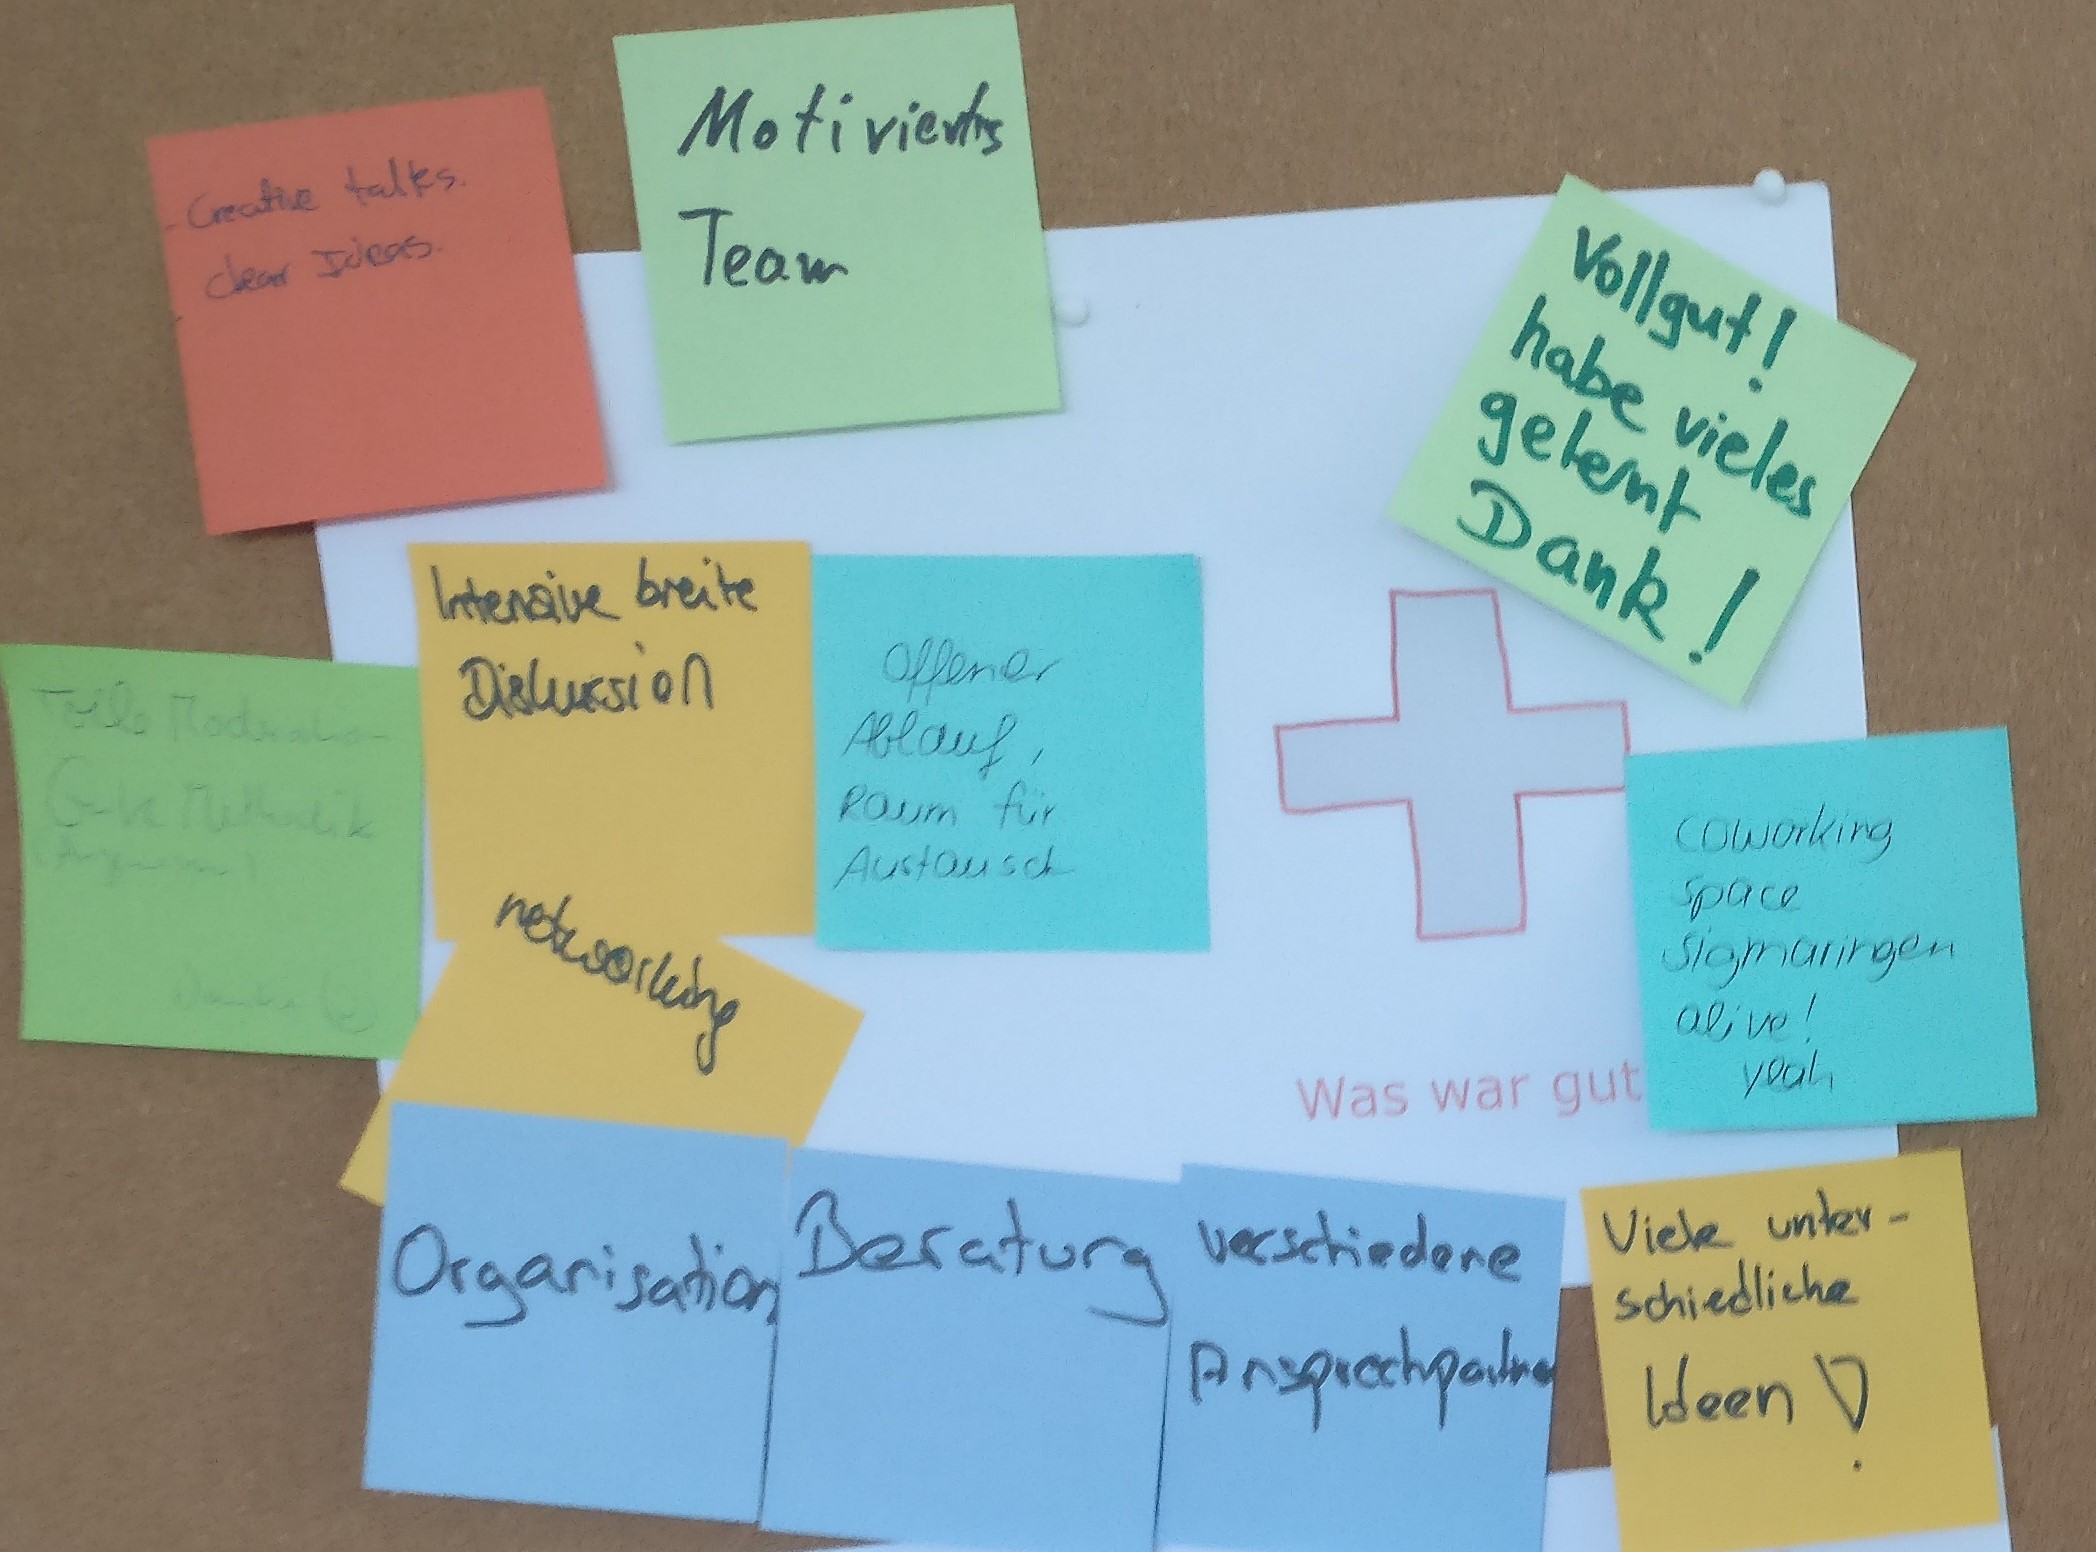 - Creative talks.
clear Ideas.
-
Motiviertes
Team
Vollgut!
habe vieles
gelernt
Dank!
Intensive breite
Diskussion
Offener
Ablauf,
Raum für
Austausch
Tolle Moderation
Gute Methodik
networking
coworking
space
Sigmaringen
alive!
yeah
Was war gut
Organisation
Beratung
verschiedene
Ansprechpartner
Viele unter-
schiedliche
Ideen!